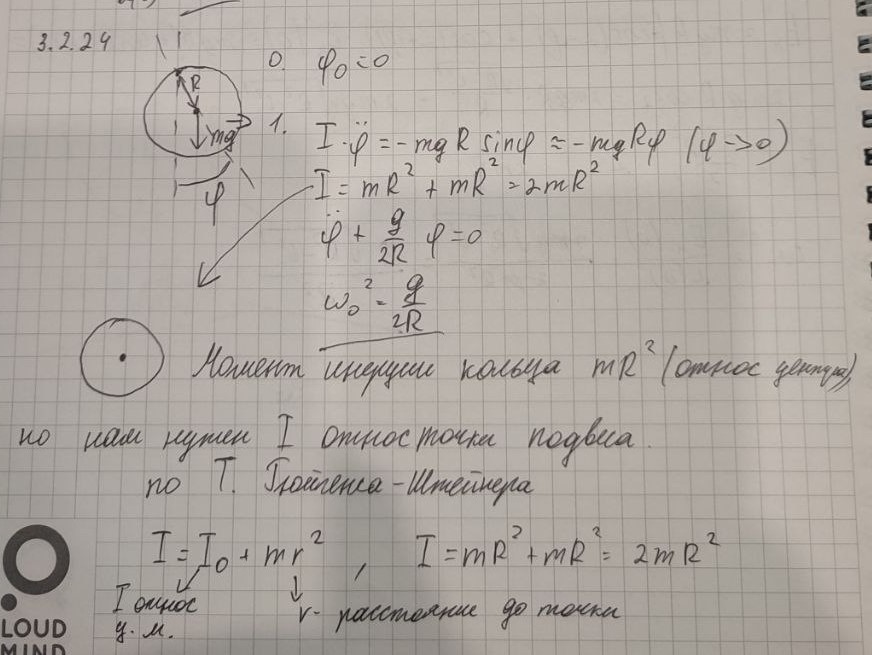 3.2.24
0. φ₀=0
R
mg
φ
1. I·φ̈ = -mgR sinφ ≈ -mgRφ (φ->0)
I = mR² + mR² = 2mR²
φ̈ + g/2R φ = 0
ω₀² = g/2R
Момент инерции кольца mR² (относ центра),
но нам нужен I относ точки подвеса.
по Т. Гюйгенса-Штейнера
I = I₀ + mr² , I = mR² + mR² = 2mR²
I относ
ц.м.
r - расстояние до точки
LOUD
MIND